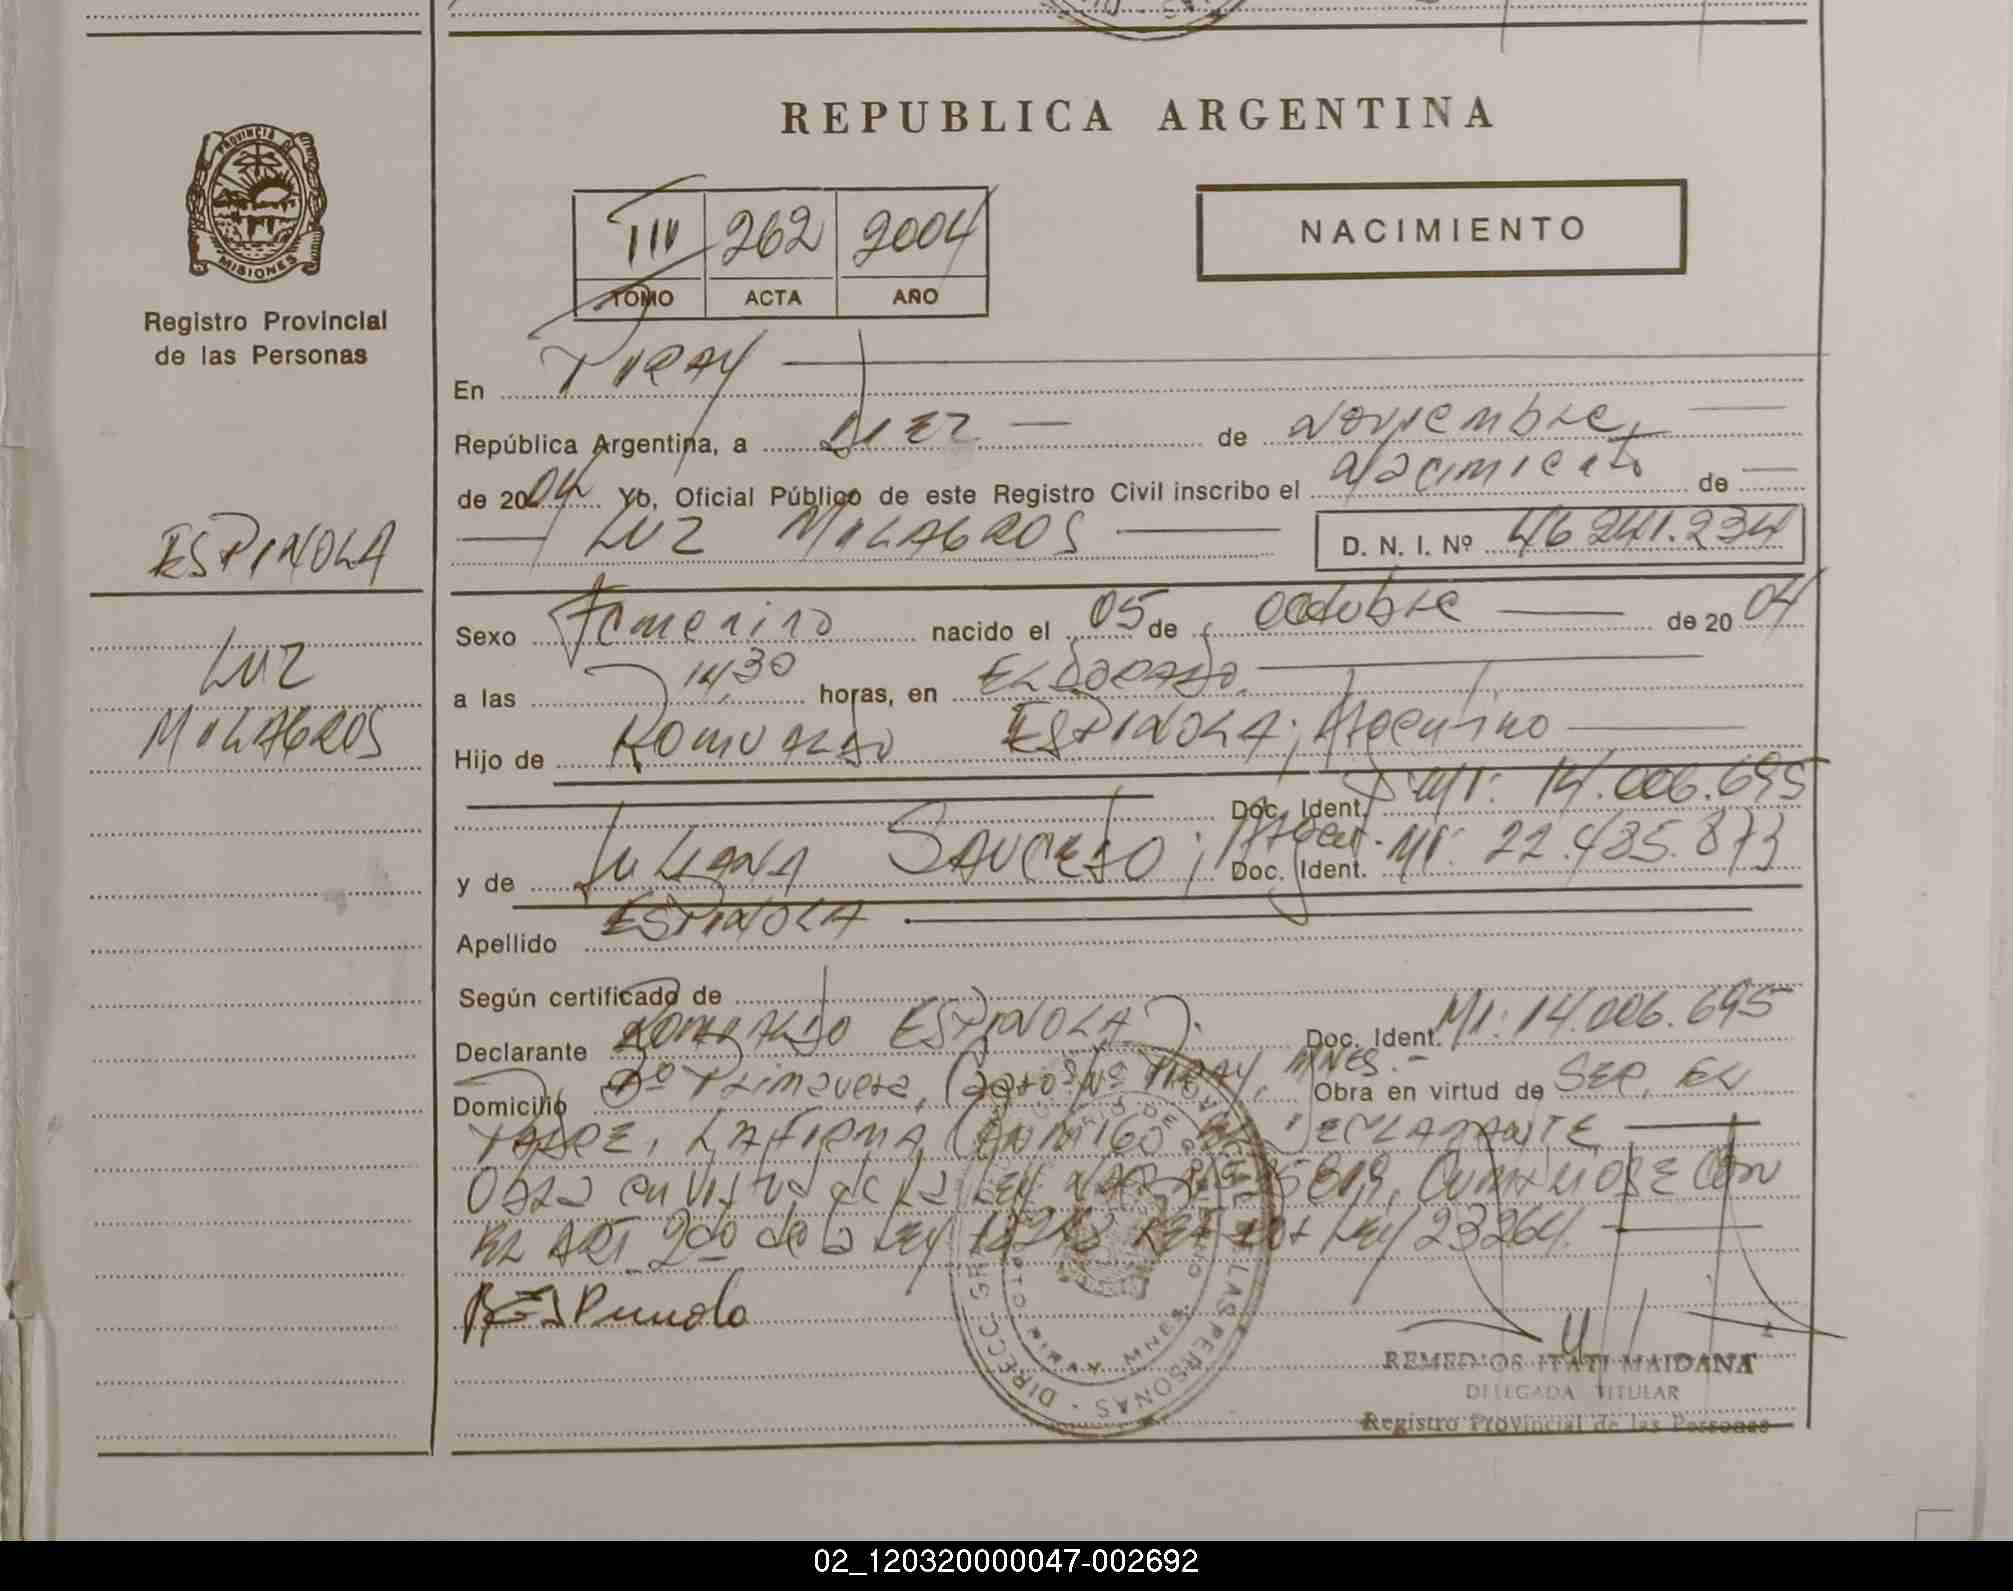 REPUBLICA ARGENTINA
PROVINCIA DE
MISIONES
Registro Provincial
de las Personas
III 262 2004
TOMO ACTA AÑO
NACIMIENTO
En PIRAY
República Argentina, a DIEZ de Noviembre,
de 2004 Yo, Oficial Público de este Registro Civil inscribo el Nacimiento de
LUZ MILAGROS D. N. I. Nº 46 241.234
ESPINOLA
LUZ
MILAGROS
Sexo Femenino nacido el 05 de Octubre de 2004
a las 14,30 horas, en ELDORADO.
Hijo de ROMUALDO ESPINOLA; Argentino
Doc. Ident. MI: 14.006.695
y de JULIANA SAUCEDO; Argen. Doc. Ident. MI: 22.435.873
Apellido ESPINOLA
Según certificado de
Declarante ROMUALDO ESPINOLA Doc. Ident. MI: 14.006.695
Domicilio Bº Primavera, PIRAY, MNES.- Obra en virtud de SER, EL
PADRE, LA FIRMA, CONMIGO EL DECLARANTE
Obra en virtud de la LEY CON
EL ART. 2do de la LEY 18248 LEY 23264.
Espinola
DIRECC LAS PERSONAS
PIRAY MNES
REMEDIOS ITATI MAIDANA
DELEGADA TITULAR
Registro Provincial de las Personas
02_120320000047-002692